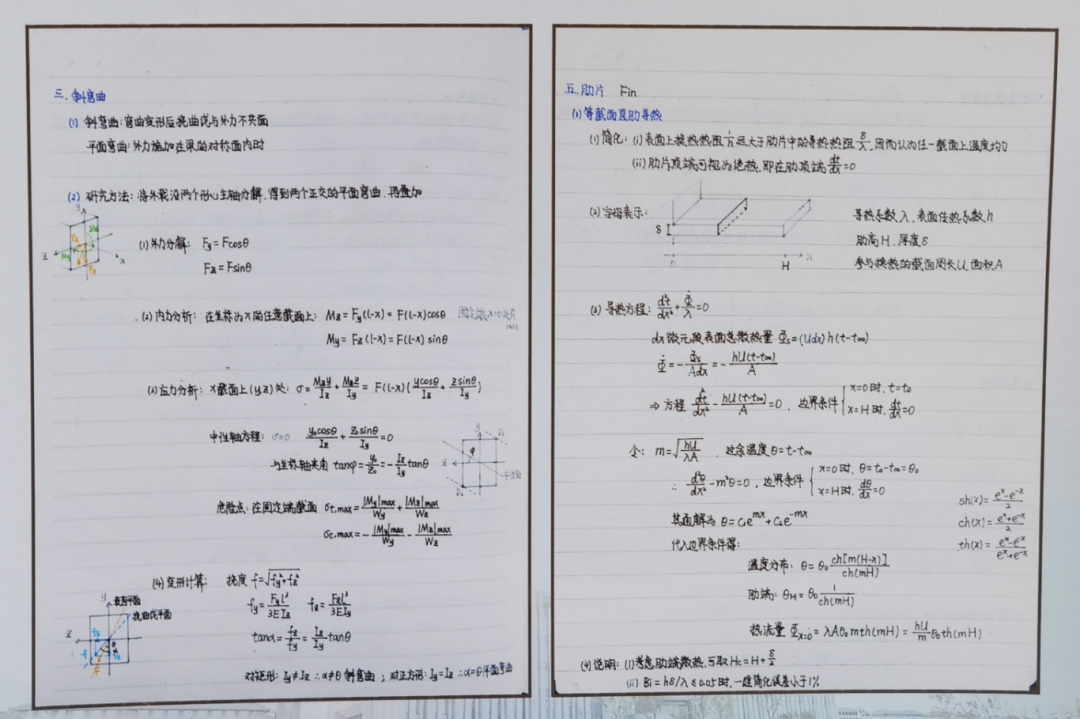 三. 斜弯曲
(1) 斜弯曲:弯曲变形后挠曲线与外力不共面
平面弯曲:外力施加在梁的对称面内时
(2) 研究方法:将外载沿两个形心主轴分解,得到两个正交的平面弯曲,再叠加
y
z
x
(1) 外力分解: Fy = Fcosθ
Fz = Fsinθ
(2) 内力分析: 在坐标为x的任意截面上: Mz = Fy(l-x) = F(l-x)cosθ 固定端,x=0处有max
My = Fz(l-x) = F(l-x)sinθ
(3) 应力分析: x截面上(y,z)处: σ = Mzy/Iz + Myz/Iy = F(l-x)(ycosθ/Iz + zsinθ/Iy)
中性轴方程: σ=0 y₀cosθ/Iz + z₀sinθ/Iy = 0
与坐标轴夹角 tanφ = y₀/z₀ = -Iz/Iy tanθ
y
D₁
z
φ
中性轴
D₂
危险点:在固定端截面 σt,max = |My|max/Wy + |Mz|max/Wz
σc,max = -|My|max/Wy - |Mz|max/Wz
(4) 变形计算: 挠度 f = √(fy²+fz²)
fy = Fyl³/3EIz fz = Fzl³/3EIy
tanα = fz/fy = Iz/Iy tanθ
载荷平面
挠曲线平面
z
对矩形: Iy≠Iz ∴α≠θ 斜弯曲; 对正方形: Iy=Iz ∴α=θ 平面弯曲
五. 肋片 Fin
(1) 等截面直肋导热
(1) 简化: (i) 表面上换热热阻1/h远大于肋片中的导热热阻δ/λ,因而认为任一截面上温度均匀
(ii) 肋片顶端可视为绝热,即在肋顶端 dt/dx = 0
(2) 字母表示:
δ
0
H
x
导热系数λ,表面传热系数h
肋高H,厚度δ
参与换热的截面周长U,面积A
(3) 导热方程: d²t/dx² + Φ̇/λ = 0
dx微元段表面总散热量 Φs = (Udx)h(t-t∞)
Φ̇ = -Φs/Adx = -hU(t-t∞)/A
⇒ 方程 d²t/dx² - hU(t-t∞)/A = 0 , 边界条件 { x=0时, t=t₀
x=H时, dt/dx=0
令: m = √(hU/λA) , 过余温度 θ = t-t∞
∴ d²θ/dx² - m²θ = 0 , 边界条件 { x=0时, θ=t₀-t∞=θ₀
x=H时, dθ/dx=0
其通解为 θ = C₁e^mx + C₂e^-mx
代入边界条件得:
sh(x) = (e^x - e^-x)/2
ch(x) = (e^x + e^-x)/2
th(x) = (e^x - e^-x)/(e^x + e^-x)
温度分布: θ = θ₀ ch[m(H-x)]/ch(mH)
肋端: θH = θ₀ 1/ch(mH)
热流量 Φx=0 = λAθ₀mth(mH) = hU/m θ₀th(mH)
(4) 说明: (i) 考虑肋端散热,可取Hc = H + δ/2
(ii) Bi = hδ/λ ≤ 0.05时,一维简化误差小于1%